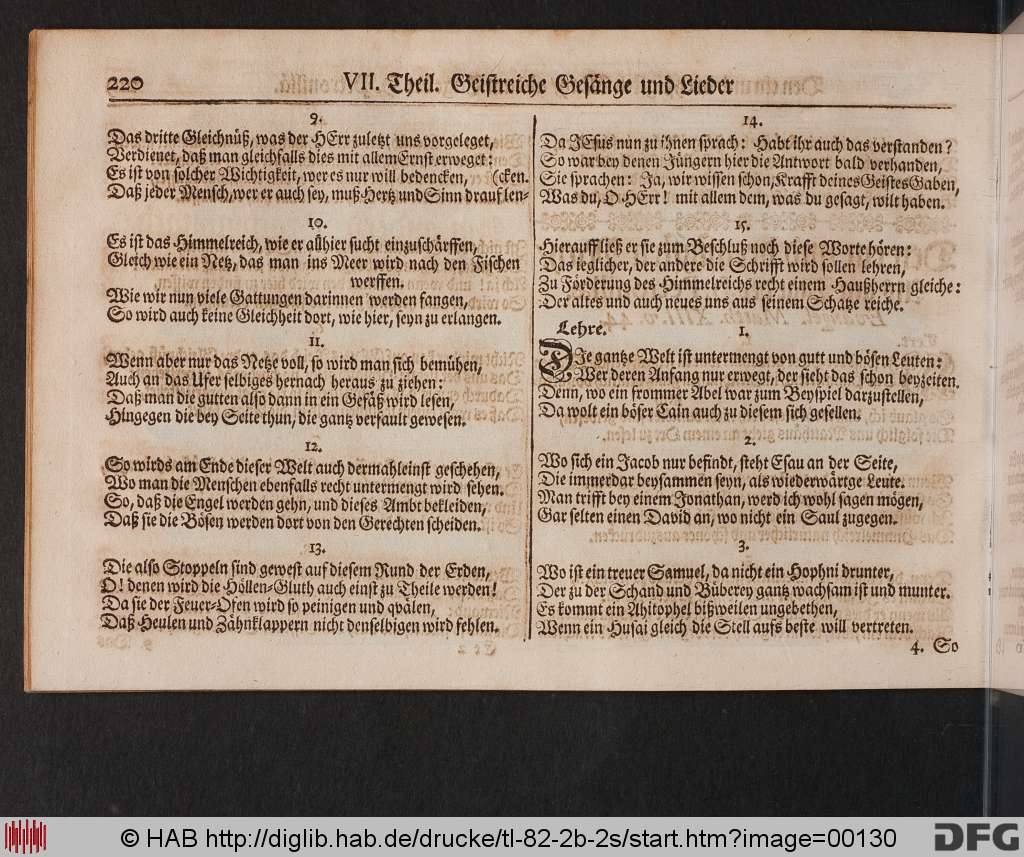 220
VII. Theil. Geistreiche Gesänge und Lieder
9.
Das dritte Gleichnüß, was der HErr zuletzt uns vorgeleget,
Verdienet, daß man gleichfalls dies mit allem Ernst erweget:
Es ist von solcher Wichtigkeit, wer es nur will bedencken, (cken.
Daß jeder Mensch, wer er auch sey, muß Hertz und Sinn drauf len-
10.
Es ist das Himmelreich, wie er allhier sucht einzuschärffen,
Gleich wie ein Netz, das man ins Meer wird nach den Fischen
werffen.
Wie wir nun viele Gattungen darinnen werden fangen,
So wird auch keine Gleichheit dort, wie hier, seyn zu erlangen.
11.
Wenn aber nur das Netze voll, so wird man sich bemühen,
Auch an das Ufer selbiges hernach heraus zu ziehen:
Daß man die gutten also dann in ein Gefäß wird lesen,
Hingegen die bey Seite thun, die gantz verfault gewesen.
12.
So wirds am Ende dieser Welt auch dermahleinst geschehen,
Wo man die Menschen ebenfalls recht untermengt wird sehen.
So, daß die Engel werden gehn, und dieses Ambt bekleiden,
Daß sie die Bösen werden dort von den Gerechten scheiden.
13.
Die also Stoppeln sind gewest auf diesem Rund der Erden,
O! denen wird die Höllen-Gluth auch einst zu Theile werden!
Da sie der Feuer-Ofen wird so peinigen und qvälen,
Daß Heulen und Zähnklappern nicht denselbigen wird fehlen.
14.
Da JEsus nun zu ihnen sprach: Habt ihr auch das verstanden?
So war bey denen Jüngern hier die Antwort bald verhanden,
Sie sprachen: Ja, wir wissen schon, Krafft deines Geistes Gaben,
Was du, O HErr! mit allem dem, was du gesagt, wilt haben.
15.
Hierauff ließ er sie zum Beschluß noch diese Worte hören:
Das ieglicher, der andere die Schrifft wird sollen lehren,
Zu Förderung des Himmelreichs recht einem Haußherrn gleiche:
Der altes und auch neues uns aus seinem Schatze reiche.
Lehre. 1.
DIe gantze Welt ist untermengt von gutt und bösen Leuten:
Wer deren Anfang nur erwegt, der sieht das schon beyzeiten.
Denn, wo ein frommer Abel war zum Beyspiel darzustellen,
Da wolt ein böser Cain auch zu diesem sich gesellen.
2.
Wo sich ein Jacob nur befindt, steht Esau an der Seite,
Die immerdar beysammen seyn, als wiederwärtge Leute.
Man trifft bey einem Jonathan, werd ich wohl sagen mögen,
Gar selten einen David an, wo nicht ein Saul zugegen.
3.
Wo ist ein treuer Samuel, da nicht ein Hophni drunter,
Der zu der Schand und Büberey gantz wachsam ist und munter.
Es kommt ein Ahitophel bißweilen ungebethen,
Wenn ein Husai gleich die Stell aufs beste will vertreten.
4. So
© HAB http://diglib.hab.de/drucke/tl-82-2b-2s/start.htm?image=00130
DFG